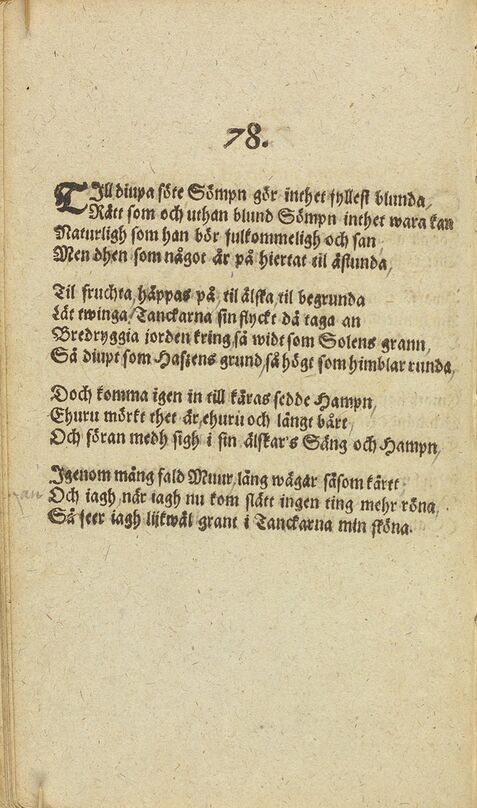 78.
TIll diupa söte Sömpn gör inthet fyllest blunda,
Rätt som och uthan blund Sömpn inthet wara kan
Naturligh som han bör fulkommeligh och san
Men dhen som något är på hiertat til åstunda,
Til fruchta, häppas på, til älska, til begrunda
Låt twinga / Tanckarna sin flyckt då taga an
Bredryggia jorden kring, så widt som Solens grann,
Så diupt som Hafzens grund, så högt som himblar runda,
Doch komma igen in till käras sedde Hampn,
Ehuru mörkt thet är, ehuru och långt bårt,
Och föran medh sigh i sin älskar's Säng och Hampn,
Igenom mång fald Muur, lång wägar såsom kårtt,
Och iagh, när iagh nu kom slätt ingen ting mehr röna,
Så seer iagh lijkwäl grant i Tanckarna min sköna.